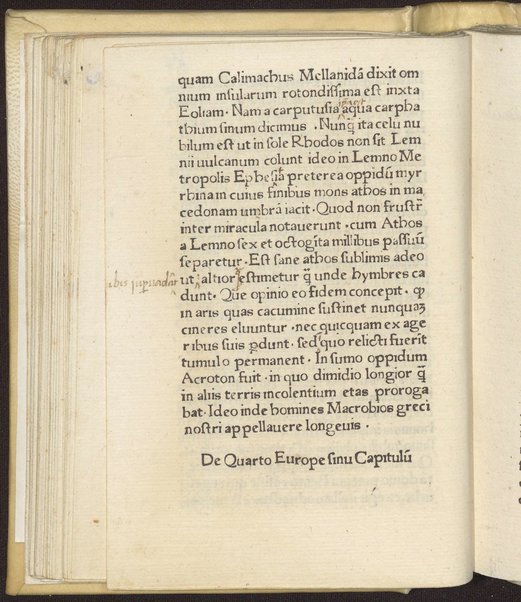 quam Calimachus Mellanidā dixit om
nium insularum rotondissima est inxta
Eoliam · Nam a carputusia aqua carpba
thium sinum dicimus · Nunq̄ ita celu nu
bilum est ut in sole Rhodos non sit Lem
nii uulcanum colunt ideo in Lemno Me
tropolis Ephesia preterea oppidū myr
rhina in cuius finibus mons athos in ma
cedonam umbrā iacit · Quod non frustr̄
inter miracula notauerunt · cum Athos
a Lemno sex et octogīta millibus passuū
separetur · Est sane athos sublimis adeo
ut altior estimetur q̄ unde hymbres ca
dunt · Que opinio eo fidem concepit · ꝙ
in aris quas cacumine sustinet nunquaꝫ
cineres eluuntur · nec quicquam ex age
ribus suis ꝑdunt · sed quo relicti fuerit
tumulo permanent · In sumo oppidum
Acroton fuit · in quo dimidio longior q̄
in aliis terris incolentium etas proroga
bat · Ideo inde homines Macrobios greci
nostri appellauere longeuis ·
De Quarto Europe sinu Capitulū